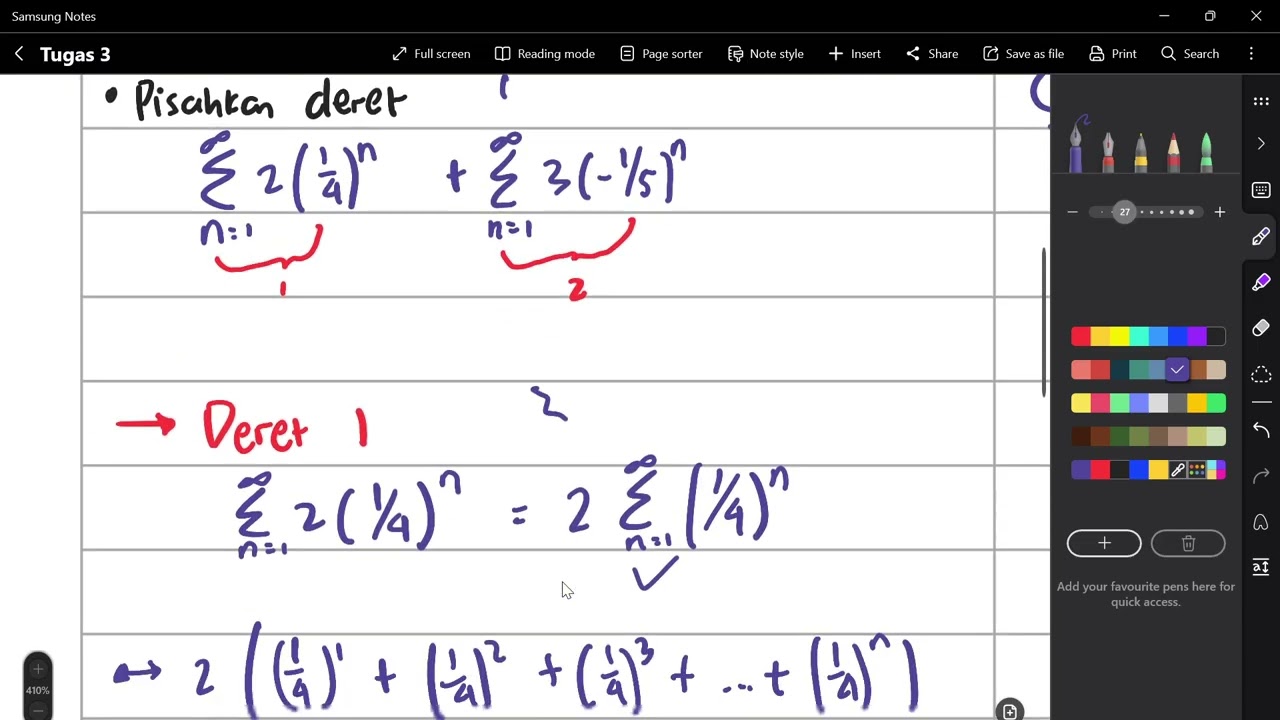 Samsung Notes
Tugas 3
Full screen
Reading mode
Page sorter
Note style
Insert
Share
Save as file
Print
Search
• Pisahkan deret
∞ ∑ n=1 2(1/4)^n + ∞ ∑ n=1 3(-1/5)^n
1
2
→ Deret 1
∞ ∑ n=1 2(1/4)^n = 2 ∞ ∑ n=1 (1/4)^n
↔ 2 ((1/4)^1 + (1/4)^2 + (1/4)^3 + ... + (1/4)^n)
27
Add your favourite pens here for
quick access.
410%